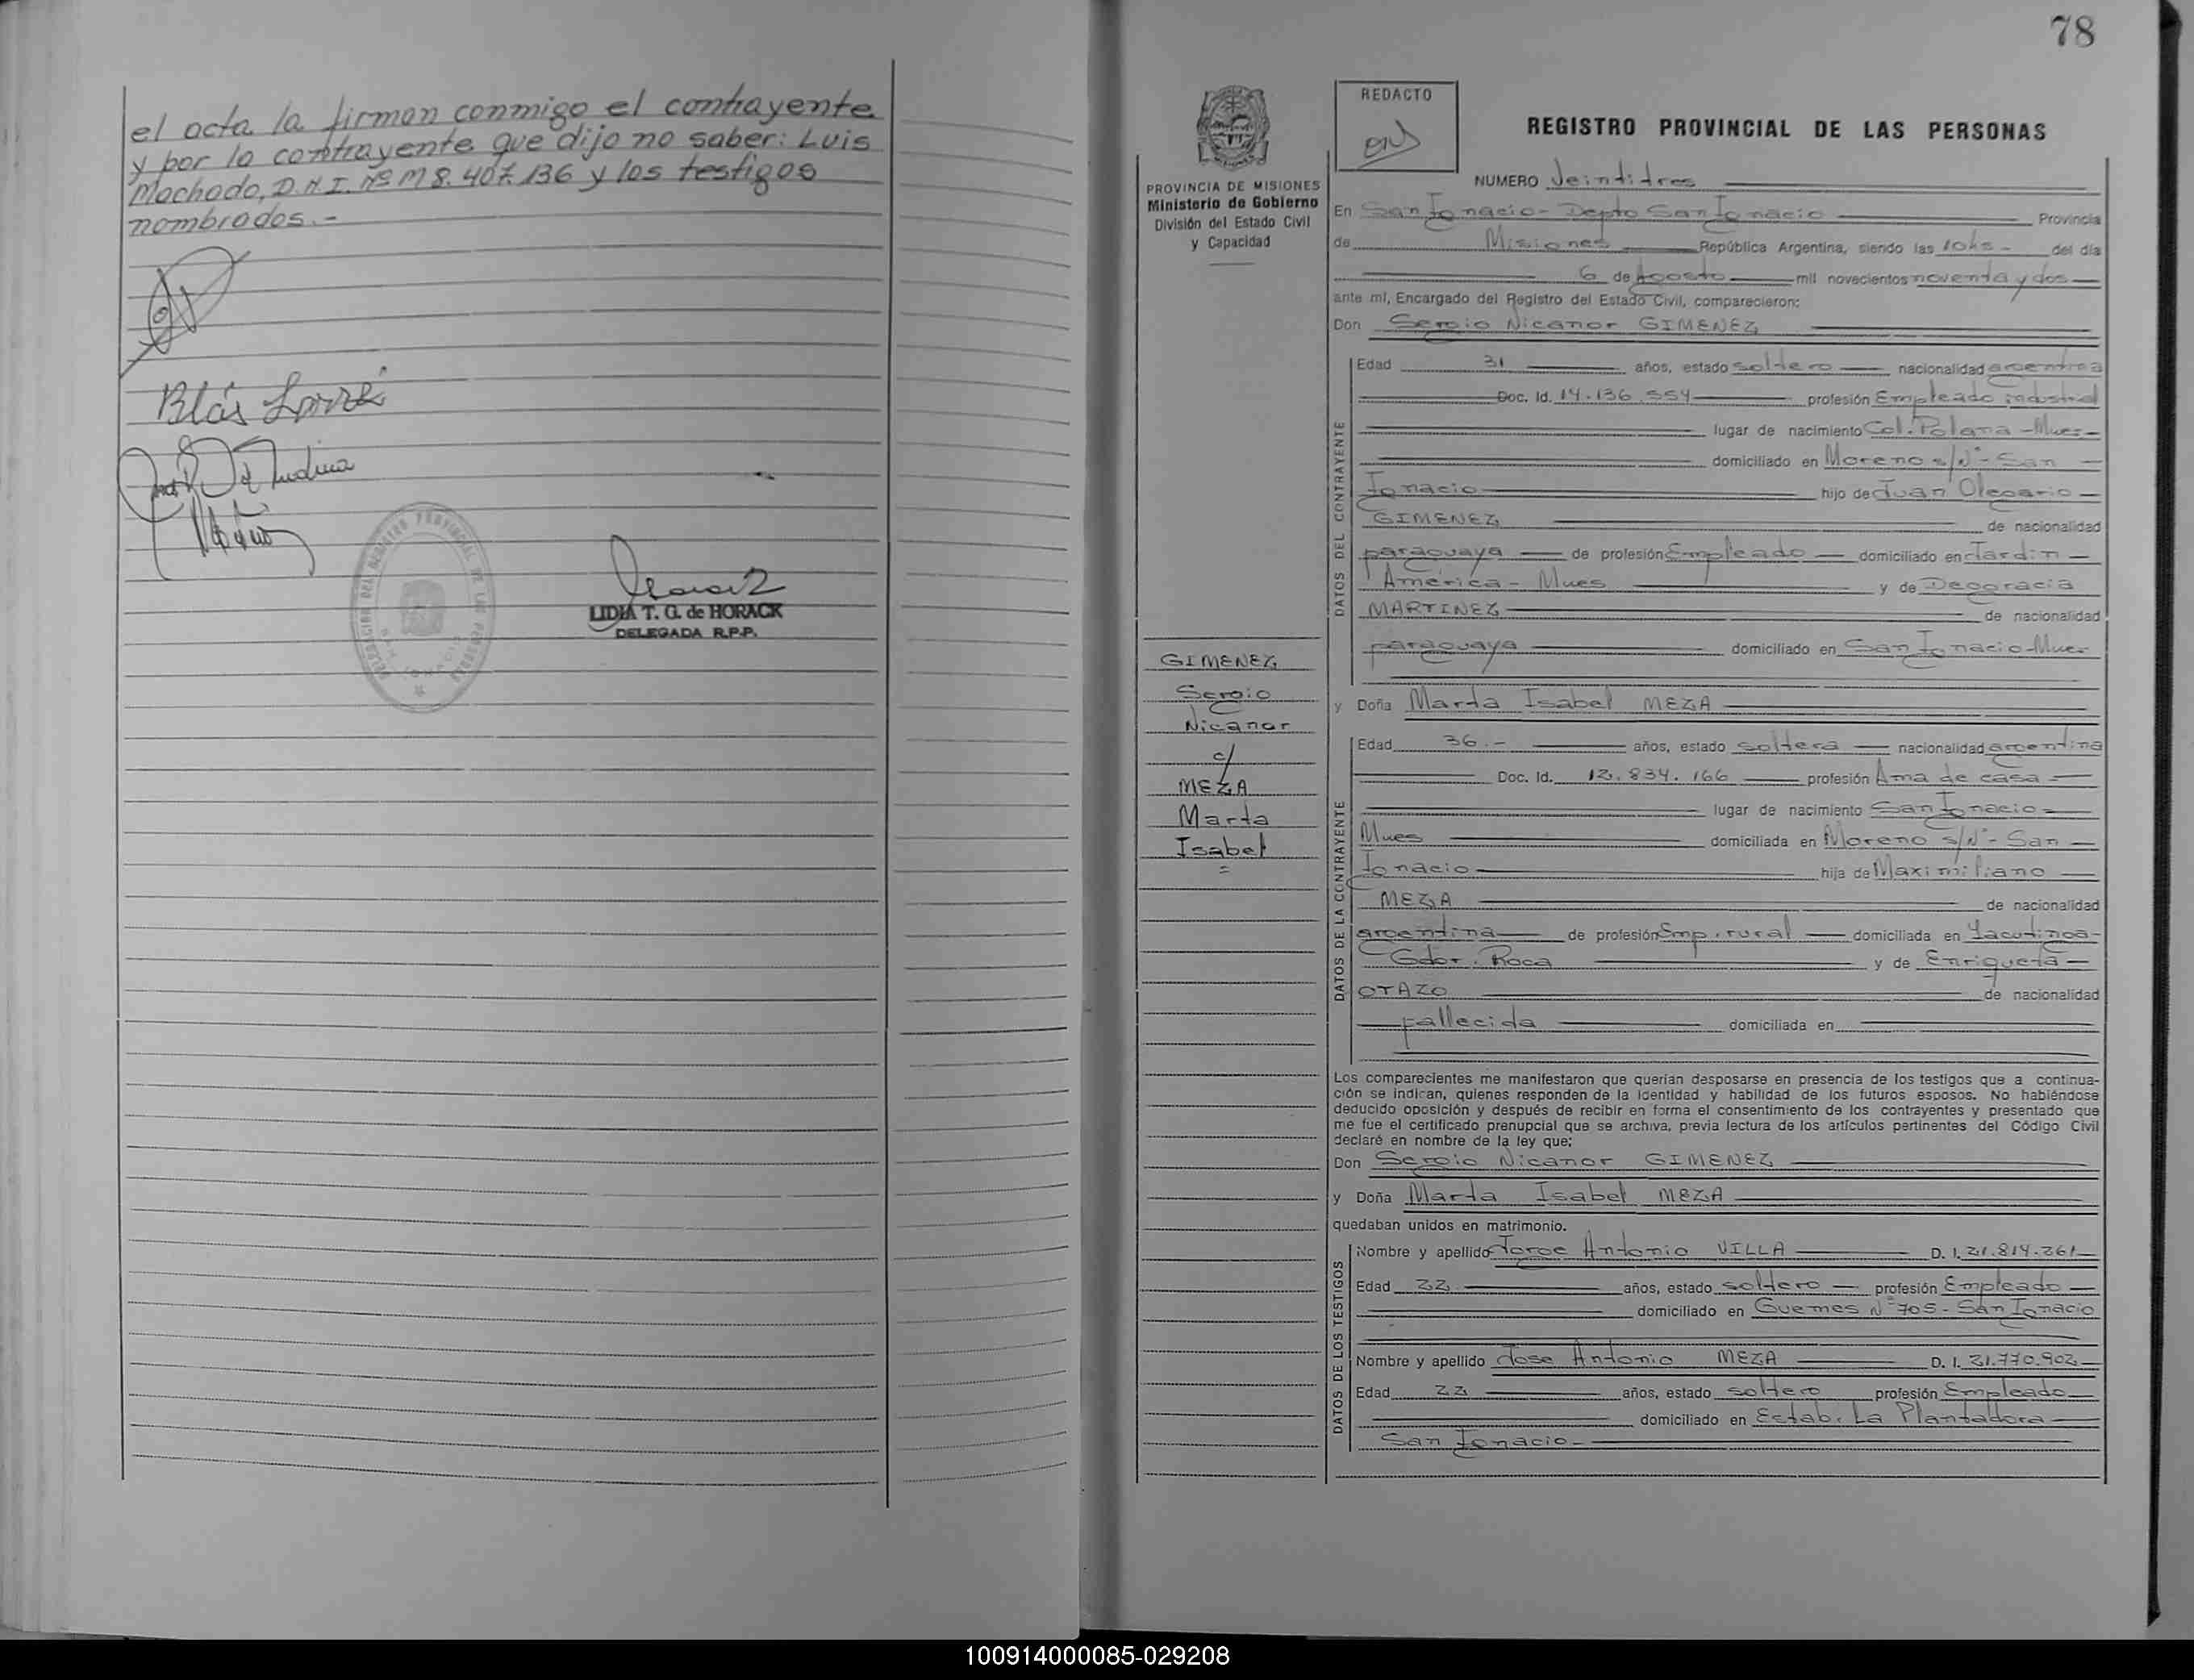 el acta la firman conmigo el contrayente
y por la contrayente que dijo no saber: Luis
Machado, D.N.I. Nº M 8.407.136 y los testigos
nombrados.-
Blás
LIDIA T. G. de HORACK
DELEGADA R.P.P.
78
REDACTO
PROVINCIA DE MISIONES
Ministerio de Gobierno
División del Estado Civil
y Capacidad
GIMENEZ
Sergio
Nicanor
c/
MEZA
Marta
Isabel
=
REGISTRO PROVINCIAL DE LAS PERSONAS
NUMERO Veintitres
En San Ignacio - Depto San Ignacio Provincia
de Misiones República Argentina, siendo las 10hs - del día
6 de Agosto mil novecientos noventa y dos
ante mí, Encargado del Registro del Estado Civil, comparecieron:
Don Sergio Nicanor GIMENEZ
DATOS DEL CONTRAYENTE
Edad 31 años, estado soltero nacionalidad argentina
Doc. Id. 14.136.554 profesión Empleado industrial
lugar de nacimiento Col. Polana - Mnes -
domiciliado en Moreno s/Nº - San
Ignacio hijo de Juan Olegario
GIMENEZ de nacionalidad
paraguaya de profesión Empleado domiciliado en Jardín
América - Mnes y de Deogracia
MARTINEZ de nacionalidad
paraguaya domiciliado en San Ignacio - Mnes
y Doña Marta Isabel MEZA
DATOS DE LA CONTRAYENTE
Edad 36.- años, estado soltera nacionalidad argentina
Doc. Id. 12.834.166 profesión Ama de casa
lugar de nacimiento San Ignacio -
Mnes domiciliada en Moreno s/Nº - San
Ignacio hija de Maximiliano
MEZA de nacionalidad
argentina de profesión Emp. rural domiciliada en Yacutinga -
Gdor. Roca y de Enriqueta
OTAZO de nacionalidad
fallecida domiciliada en
Los comparecientes me manifestaron que querían desposarse en presencia de los testigos que a continua-
ción se indican, quienes responden de la identidad y habilidad de los futuros esposos. No habiéndose
deducido oposición y después de recibir en forma el consentimiento de los contrayentes y presentado que
me fue el certificado prenupcial que se archiva, previa lectura de los artículos pertinentes del Código Civil
declaré en nombre de la ley que:
Don Sergio Nicanor GIMENEZ
y Doña Marta Isabel MEZA
quedaban unidos en matrimonio.
DATOS DE LOS TESTIGOS
Nombre y apellido Jorge Antonio VILLA D. I. 21.814.261
Edad 22 años, estado soltero profesión Empleado
domiciliado en Guemes Nº 705 - San Ignacio
Nombre y apellido Jose Antonio MEZA D. I. 21.770.902
Edad 22 años, estado soltero profesión Empleado
domiciliado en Estab. La Plantadora
San Ignacio -
100914000085-029208